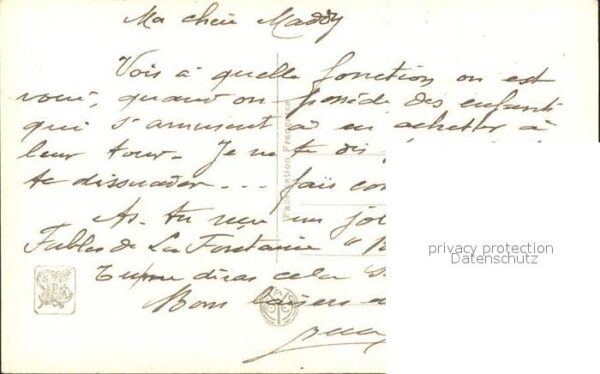 Ma chère Maddy
Vois à quelle fonction on est
voué, quand on possède des enfants
qui s'amusent à en acheter à
leur tour. Je ne te dis
te dissuader... fais
As-tu reçu un
Fables de La Fontaine "
Tu me diras cela
Bons baisers
Fabrication Française
privacy protection
Datenschutz